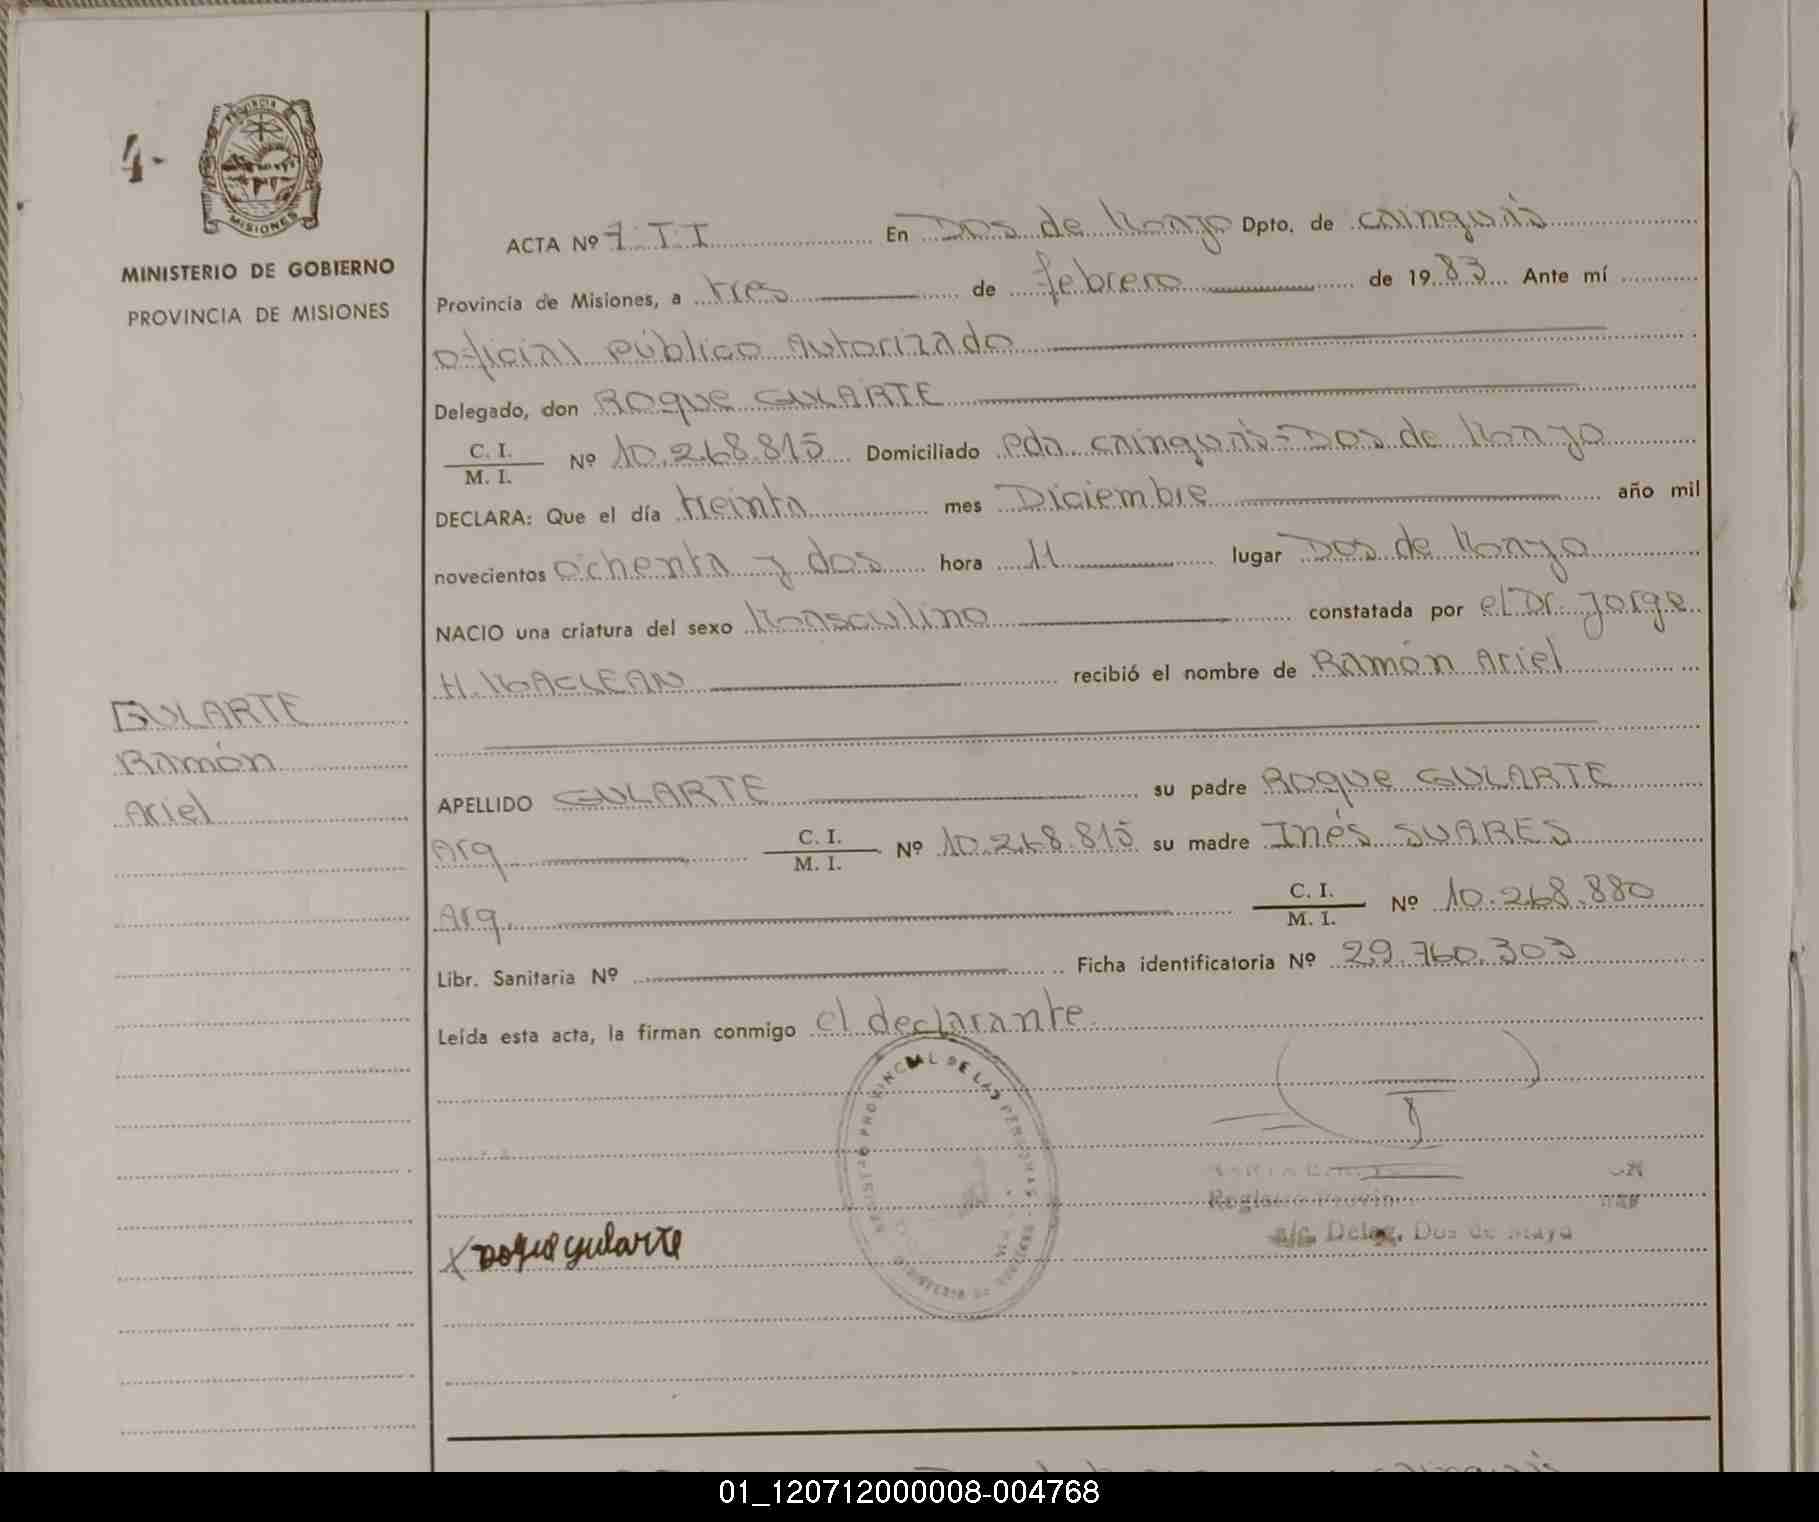 4-
PROVINCIA
MISIONES
MINISTERIO DE GOBIERNO
PROVINCIA DE MISIONES
ACTA Nº 7. T I En Dos de Mayo Dpto. de cainguás
Provincia de Misiones, a tres de febrero de 1983 Ante mí
oficial público Autorizado
Delegado, don Roque GULARTE
C. I.
M. I. Nº 10.268.815 Domiciliado pda. cainguás-Dos de Mayo
DECLARA: Que el día treinta mes Diciembre año mil
novecientos ochenta y dos hora 11 lugar Dos de Mayo
NACIO una criatura del sexo Masculino constatada por el Dr. Jorge
H. MACLEAN recibió el nombre de Ramón Ariel
GULARTE
Ramón
Ariel
APELLIDO GULARTE su padre Roque GULARTE
Arg C. I.
M. I. Nº 10.268.815 su madre Inés SUARES
Arg. C. I.
M. I. Nº 10.268.880
Libr. Sanitaria Nº Ficha identificatoria Nº 29.760.303
Leída esta acta, la firman conmigo el declarante.
REGISTRO PROVINCIAL DE LAS PERSONAS
a/c. Deleg. Dos de Mayo
X Roque gularte
01_120712000008-004768